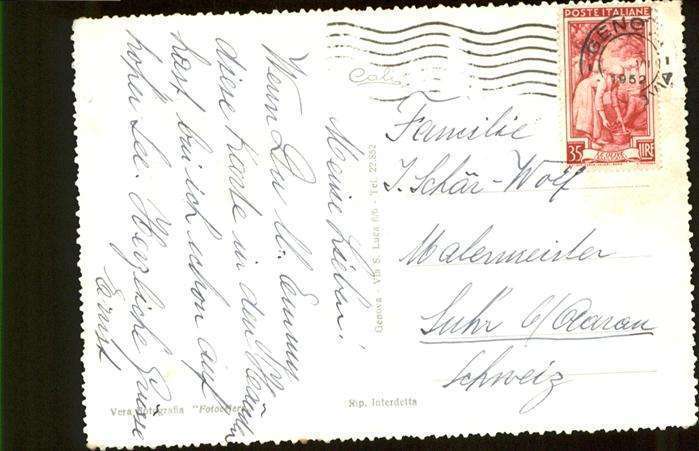 Meine Lieben!
Wenn Du u. Emmy
diese Karte in den Händen
hast, bin ich schon auf
hoher See. Herzliche Grüsse
Ernst
POSTE ITALIANE
GENOVA
1952
35 LIRE
Familie
J. Schär-Wolf
Malermeister
Suhr b/Aarau
Schweiz
Genova - Via S. Luca 6/6 - Tel. 22.852
Vera fotografia
Rip. interdetta